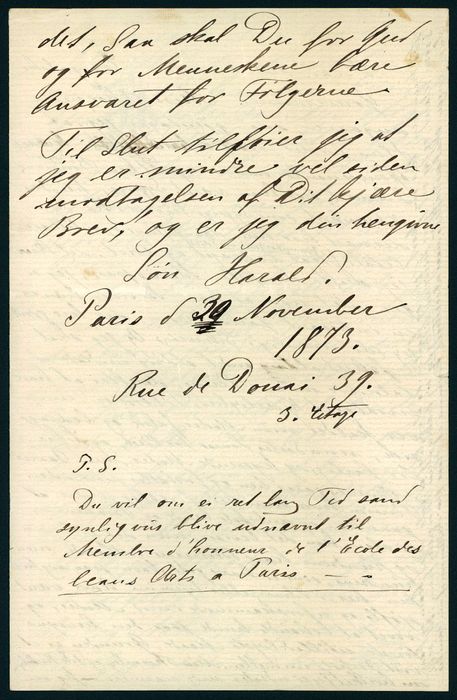 det, saa skal Du for Gud
og for Menneskene bære
Ansvaret for Følgerne
Til Slut tilføier jeg at
jeg er mindre vel siden
modtagelsen af Dit kjære
Brev, og er jeg din hengivne
Søn Harald.
Paris d 30 November
1873.
Rue de Douai 39.
3. Etage
P. S.
Du vil om ei ret lang Tid sand
synligviis blive udnævnt til
Membre d'honneur de l'École des
beaux Arts a Paris. — —